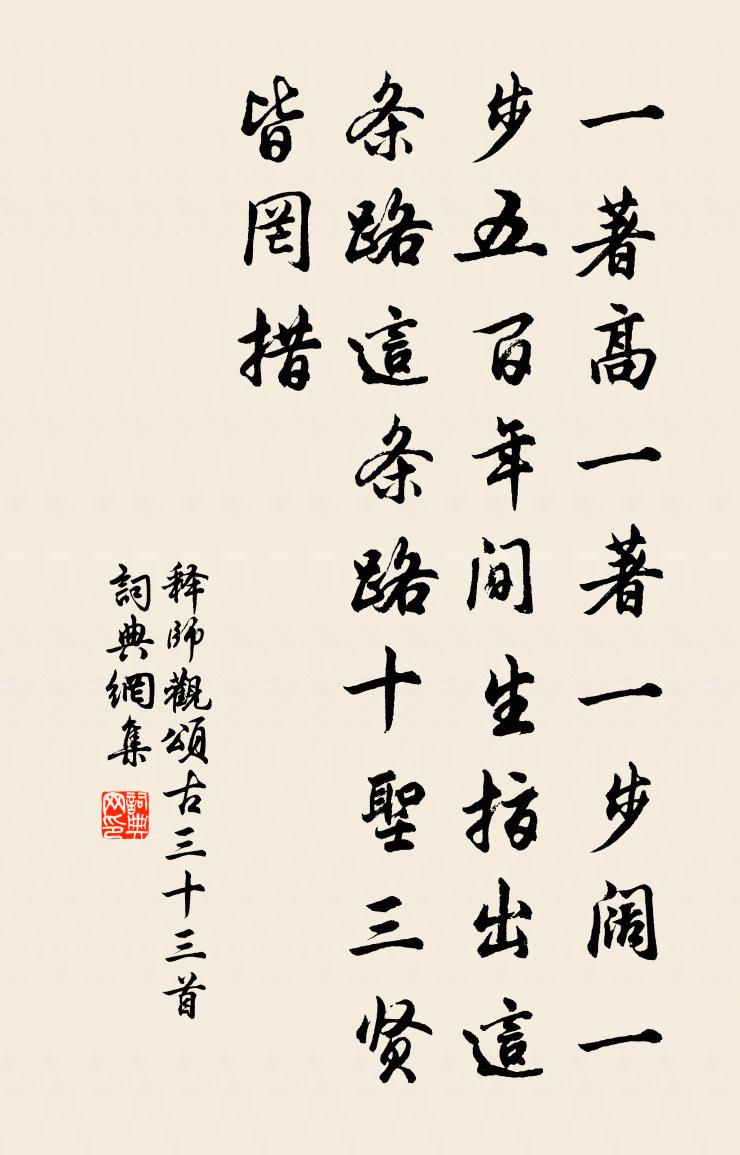 一著高一著一步阔一
步五百年间生指出這
条路這条路十聖三贤
皆罔措
释師觀頌古三十三首
詞典網集
詞典网印